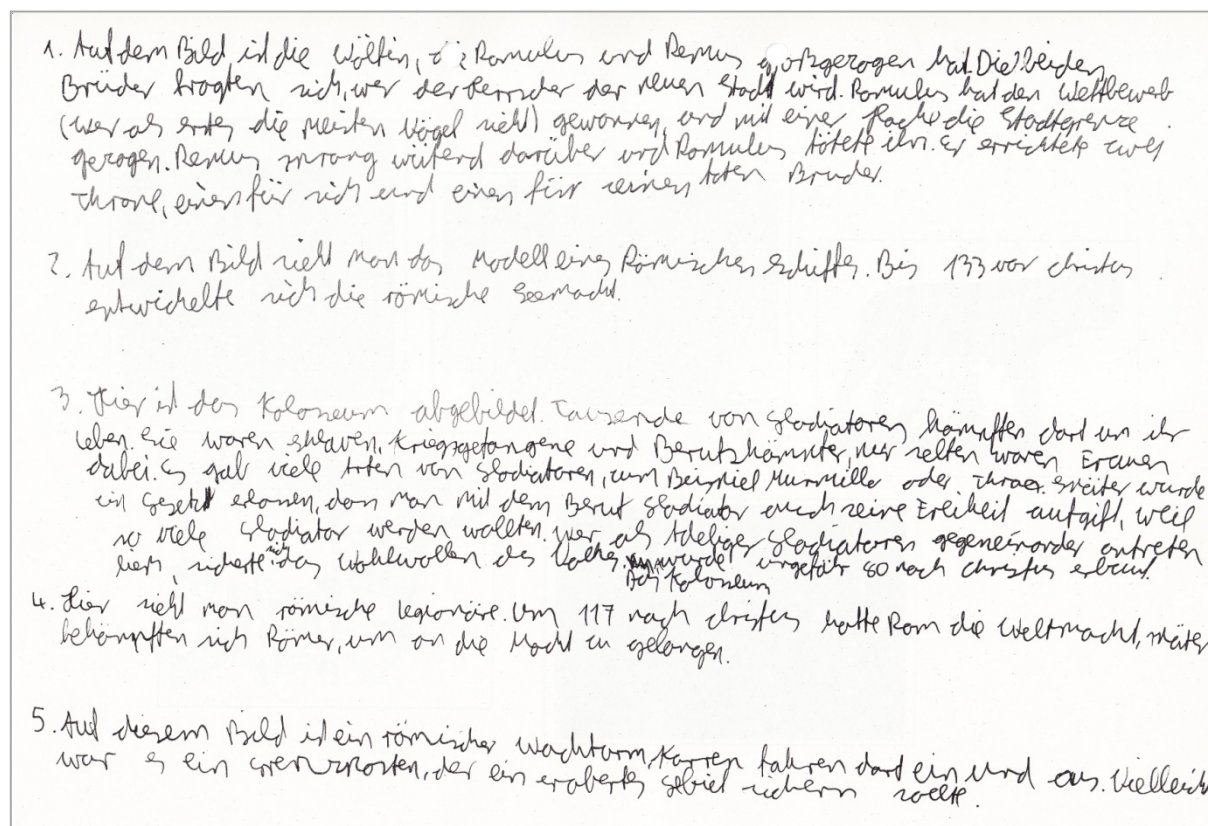 1. Auf dem Bild ist die Wölfin, die Romulus und Remus großgezogen hat. Die beiden
Brüder fragten sich, wer der Herrscher der neuen Stadt wird. Romulus hat den Wettbewerb
(wer als erstes die meisten Vögel sieht) gewonnen, und mit einer die Stadtgrenze
gezogen. Remus sprang wütend darüber und Romulus tötete ihn. Er errichtete zwei
Throne, einen für sich und einen für seinen toten Bruder.
2. Auf dem Bild sieht man das Modell eines Römischen Schiffes. Bis 133 vor Christus
entwickelte sich die römische Seemacht.
3. Hier ist das Koloseum abgebildet. Tausende von Gladiatoren kämpften dort um ihr
Leben. Sie waren Sklaven, Kriegsgefangene und Berufskämpfer, nur selten waren Frauen
dabei. Es gab viele Arten von Gladiatoren, zum Beispiel Murmillo oder Thraex. Später wurde
ein Gesetz erlassen, dass man mit dem Beruf Gladiator auch seine Freiheit aufgibt, weil
so viele Gladiator werden wollten. Wer als Adeliger Gladiatoren gegeneinander antreten
ließ, sicherte sich das Wohlwollen des Volkes. Das Koloseum wurde ungefähr 80 nach Christus erbaut.
4. Hier sieht man römische Legionäre. Um 117 nach Christus hatte Rom die Weltmacht, später
bekämpften sich Römer, um an die Macht zu gelangen.
5. Auf diesem Bild ist ein römischer Wachturm, Karren fahren dort ein und aus. Vielleicht
war es ein Grenzposten, der ein erobertes Gebiet sichern sollte.